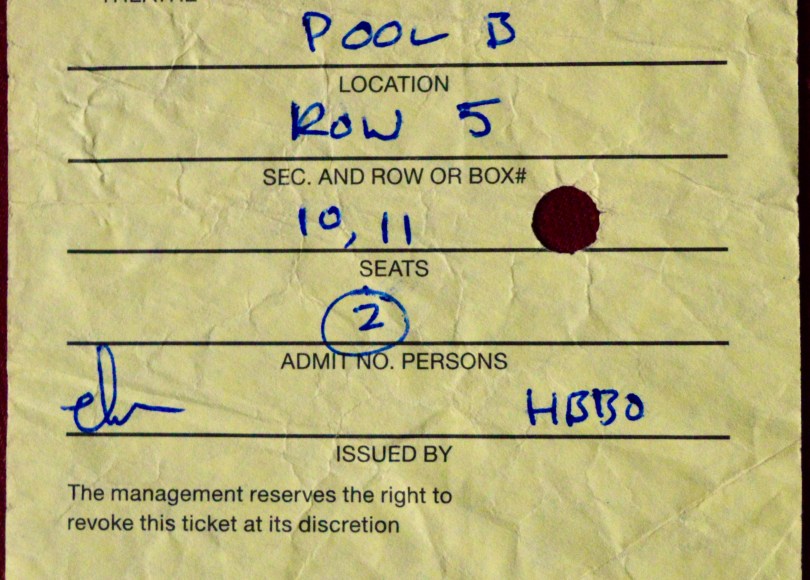 POOL B
LOCATION
ROW 5
SEC. AND ROW OR BOX#
10, 11
SEATS
2
ADMIT NO. PERSONS
HBBO
ISSUED BY
The management reserves the right to
revoke this ticket at its discretion